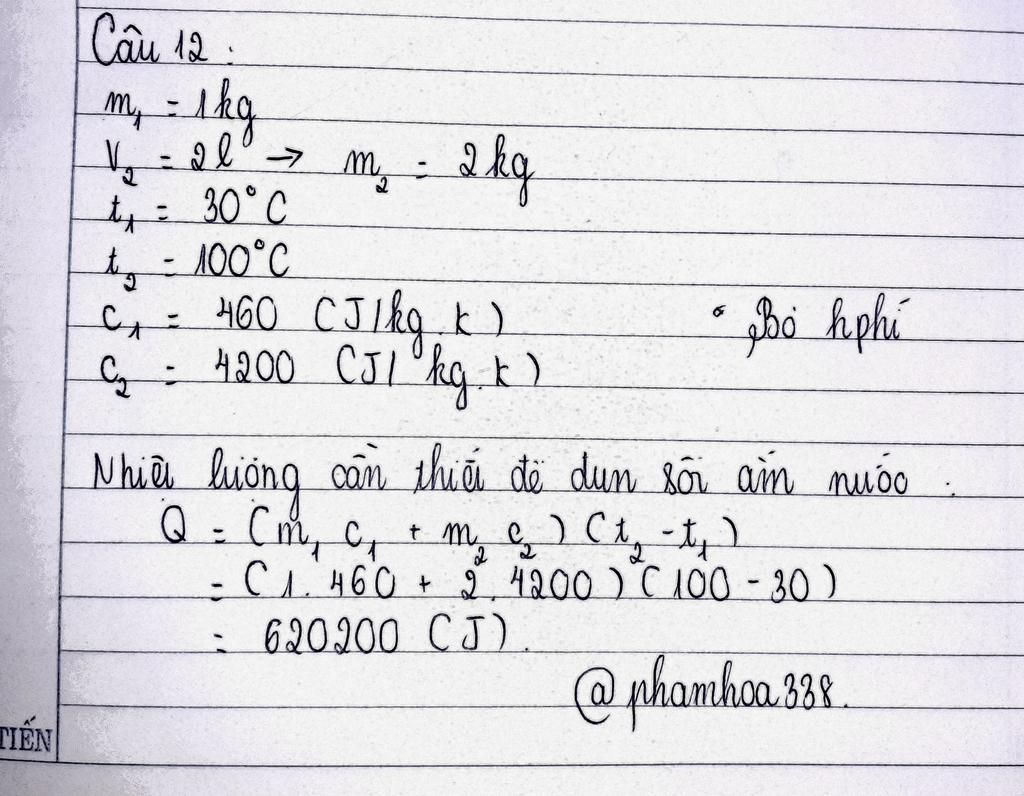 Câu 12 :
m₁ = 1kg
V₂ = 2l → m₂ = 2kg
t₁ = 30°C
t₂ = 100°C
c₁ = 460 (J/kg.k)
Bỏ hphí
c₂ = 4200 (J/kg.k)
Nhiệt lượng cần thiết để đun sôi ấm nước :
Q = (m₁ c₁ + m₂ c₂) (t₂ - t₁)
= (1.460 + 2.4200) (100 - 30)
= 620200 (J).
@phamhoa338.
TIẾN